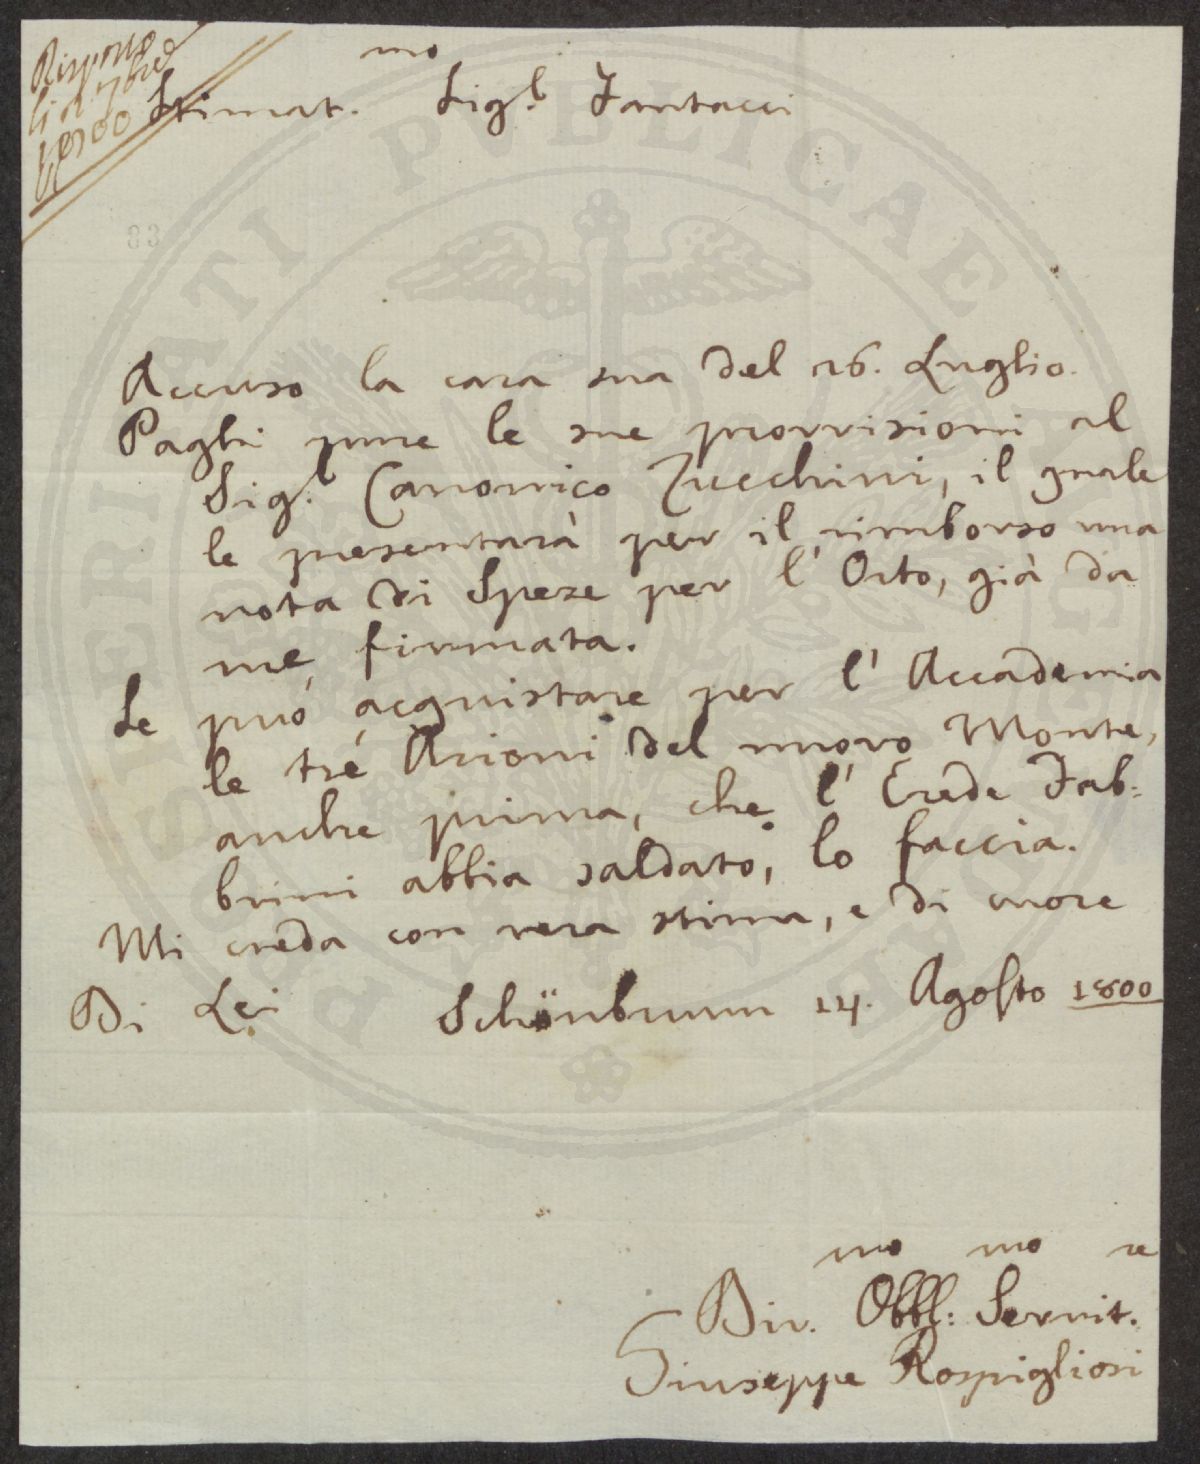 Risposto
li 2 7bre
1800
Stimat.mo Sig.r Fantacci
83
Accuso la cara sua del 26. Luglio.
Paghi pure le sue provvisioni al
Sig.r Canonico Zucchini, il quale
le presentarà per il rimborso una
nota di Spese per l'Orto, già da
me firmata.
Se può acquistare per l'Accademia
le tré Azioni del nuovo Monte,
anche prima, che l'Erede Fab:
brini abbia saldato, lo faccia.
Mi creda con vera stima, e di cuore
Di Lei Schönbrunn 14. Agosto 1800
Div.mo Obbl:mo Servit.re
Giuseppe Rospigliosi